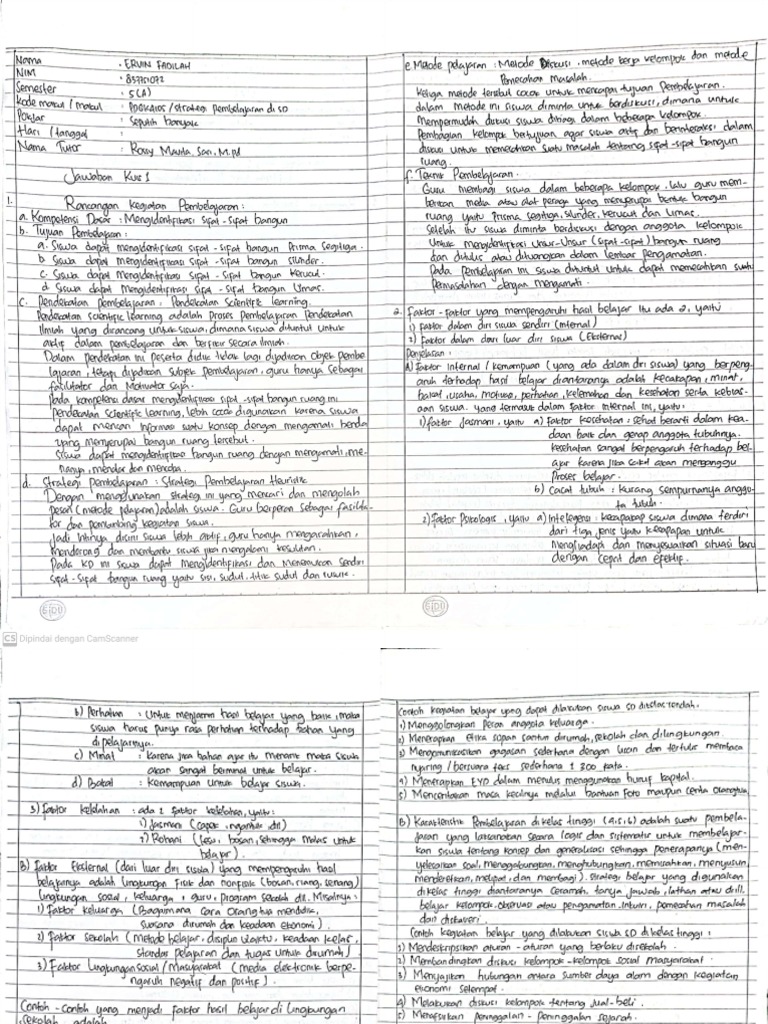 Nama : ERVIN FADILAH
NIM : 837701072
Semester : 5 (A)
Kode matkul / matkul : PDGK4105 / strategi pembelajaran di SD
Pokjar : Seputih banyak
Hari / tanggal :
Nama Tutor : Rossy Mauta, Sari, M.Pd
Jawaban Kuis 1
1. Rancangan kegiatan Pembelajaran :
a. Kompetensi Dasar : Mengidentifikasi Sifat-sifat bangun
b. Tujuan Pembelajaran :
a. Siswa dapat mengidentifikasi sifat-sifat bangun Prisma segitiga.
b. Siswa dapat mengidentifikasi sifat-sifat bangun silinder.
c. Siswa dapat Mengidentifikasi sifat-sifat bangun Kerucut.
d. Siswa dapat Mengidentifikasi sifat-sifat bangun Limas.
c. Pendekatan Pembelajaran : Pendekatan Scientific learning.
Pendekatan scientific learning adalah Proses Pembelajaran Pendekatan
ilmiah yang dirancang untuk siswa, dimana siswa dituntut untuk
aktif dalam pembelajaran dan berpikir secara ilmiah.
Dalam pendekatan ini peserta didik tidak lagi dijadikan objek Pembe
lajaran, tetapi dijadikan subjek pembelajaran, guru hanya sebagai
fasilitator dan Motivator saja.
Pada kompetensi dasar mengidentifikasi sifat-sifat bangun ruang ini
Pendekatan Scientific learning, lebih cocok digunakan karena siswa
dapat mencari informasi suatu konsep dengan mengamati benda
yang menyerupai bangun ruang tersebut.
Siswa dapat mengidentifikasi bangun ruang dengan mengamati, me-
nanya, menalar dan mencoba.
d. Strategi pembelajaran : Strategi Pembelajaran Heuristik
Dengan menggunakan strategi ini yang mencari dan mengolah
pesan (metode pelajaran) adalah siswa. Guru berperan sebagai fasilita
tor dan pembimbing kegiatan siswa.
Jadi intinya, disini siswa lebih aktif, guru hanya mengarahkan,
mendorong dan membantu siswa jika mengalami kesulitan.
Pada KD ini siswa dapat mengidentifikasi dan Menemukan sendiri
Sifat-sifat bangun ruang yaitu sisi, sudut, titik sudut dan rusuk.
SIDU
CS Dipindai dengan CamScanner
e. Metode pelajaran : Metode Diskusi, metode kerja kelompok dan metode
Pemecahan masalah.
Ketiga metode tersebut cocok untuk mencapai tujuan Pembelajaran.
dalam metode ini siswa diminta untuk berdiskusi, dimana untuk
Mempermudah diskusi siswa dibagi dalam beberapa kelompok.
Pembagian kelompok bertujuan agar siswa aktif dan berinteraksi dalam
diskusi untuk memecahkan suatu masalah tentang sifat-sifat bangun
ruang.
f. Teknik Pembelajaran :
Guru membagi siswa dalam beberapa kelompok, lalu guru mem-
berikan media atau alat peraga yang menyerupai bentuk bangun
ruang yaitu Prisma, segitiga, silinder, kerucut dan Limas.
Setelah itu siswa diminta berdiskusi dengan anggota kelompok
Untuk mengidentifikasi unsur-unsur (sifat-sifat) bangun ruang
dan ditulis atau dituangkan dalam lembar pengamatan.
Pada Pembelajaran ini siswa dituntut untuk dapat memecahkan suatu
Permasalahan dengan mengamati.
2. Faktor-faktor yang mempengaruhi hasil belajar itu ada 2, yaitu
1) faktor dalam diri siswa sendiri (internal)
2) faktor dalam dari luar diri siswa (Eksternal)
Penjelasan :
A) Faktor Internal / kemampuan (yang ada dalam diri siswa) yang berpeng-
aruh terhadap hasil belajar diantaranya adalah kecakapan, minat,
bakat, usaha, motivasi, perhatian, kelemahan dan kesehatan serta kebias-
aan siswa. yang termasuk dalam faktor internal ini, yaitu :
1) faktor Jasmani, yaitu a) faktor kesehatan : sehat berarti dalam kea-
daan baik dan genap anggota tubuhnya.
kesehatan sangat berpengaruh terhadap bel-
ajar karena jika sakit akan mengganggu
Proses belajar.
b) Cacat tubuh : Kurang sempurnanya anggo-
ta tubuh.
2) faktor Psikologis, yaitu a) Intelegensi : kecakapan siswa dimana terdiri
dari tiga jenis yaitu kecakapan untuk
Menghadapi dan menyesuaikan situasi baru
dengan cepat dan efektif.
SIDU
b) Perhatian : Untuk menjamin hasil belajar yang baik, maka
siswa harus punya rasa perhatian terhadap bahan yang
di pelajarinya.
c) Minat : karena jika bahan ajar itu menarik maka siswa
akan sangat berminat untuk belajar.
d) Bakat : Kemampuan untuk belajar siswa.
3) faktor kelelahan : ada 2 faktor kelelahan, yaitu :
1) Jasmani (capek, ngantuk dll)
2) Rohani (lesu, bosan, sehingga malas untuk
belajar).
B) faktor Eksternal (dari luar diri siswa) yang mempengaruhi hasil
belajarnya adalah lingkungan Fisik dan nonfisik (bosan, riang, senang)
lingkungan sosial, keluarga, guru, program sekolah dll. Misalnya :
1) faktor keluarga (Bagaimana cara orangtua mendidik,
suasana dirumah dan keadaan ekonomi).
2) faktor sekolah (metode belajar, disiplin waktu, keadaan kelas,
standar pelajaran dan tugas untuk dirumah)
3) faktor Lingkungan Sosial / Masyarakat (media elektronik berpe-
ngaruh negatif dan positif).
Contoh - contoh yang menjadi faktor hasil belajar di lingkungan
sekolah adalah
Contoh kegiatan belajar yang dapat dilakukan siswa SD dikelas rendah.
1) Menggolongkan peran anggota keluarga.
2) Menerapkan etika sopan santun dirumah, sekolah dan dilingkungan.
3) Mengomunikasikan gagasan sederhana dengan lisan dan tertulis membaca
nyaring / bersuara teks sederhana ± 300 kata.
4) Menerapkan EYD dalam menulis menggunakan huruf kapital.
5) Menceritakan masa kecilnya melalui bantuan foto maupun cerita orangtua
B) Karakteristik Pembelajaran di kelas tinggi (4,5,6) adalah suatu pembela-
jaran yang dilaksanakan secara logis dan sistematis untuk membelajar-
kan siswa tentang konsep dan generalisasi sehingga penerapannya (men-
yelesaikan soal, menggabungkan, menghubungkan, memisahkan, menyusun,
menderetkan, melipat, dan membagi). strategi belajar yang digunakan
dikelas tinggi diantaranya ceramah, tanya jawab, latihan atau drill,
belajar kelompok, observasi atau pengamatan, inkuiri, pemecahan masalah
dan diskoveri.
Contoh kegiatan belajar yang dilakukan siswa SD di kelas tinggi :
1) Mendeskripsikan aturan-aturan yang berlaku disekolah.
2) Membandingkan diskusi kelompok-kelompok sosial masyarakat
3) Menyajikan hubungan antara sumber daya alam dengan kegiatan
ekonomi setempat.
4) Melakukan diskusi kelompok tentang jual-beli.
5) Menafsirkan peninggalan-peninggalan sejarah.